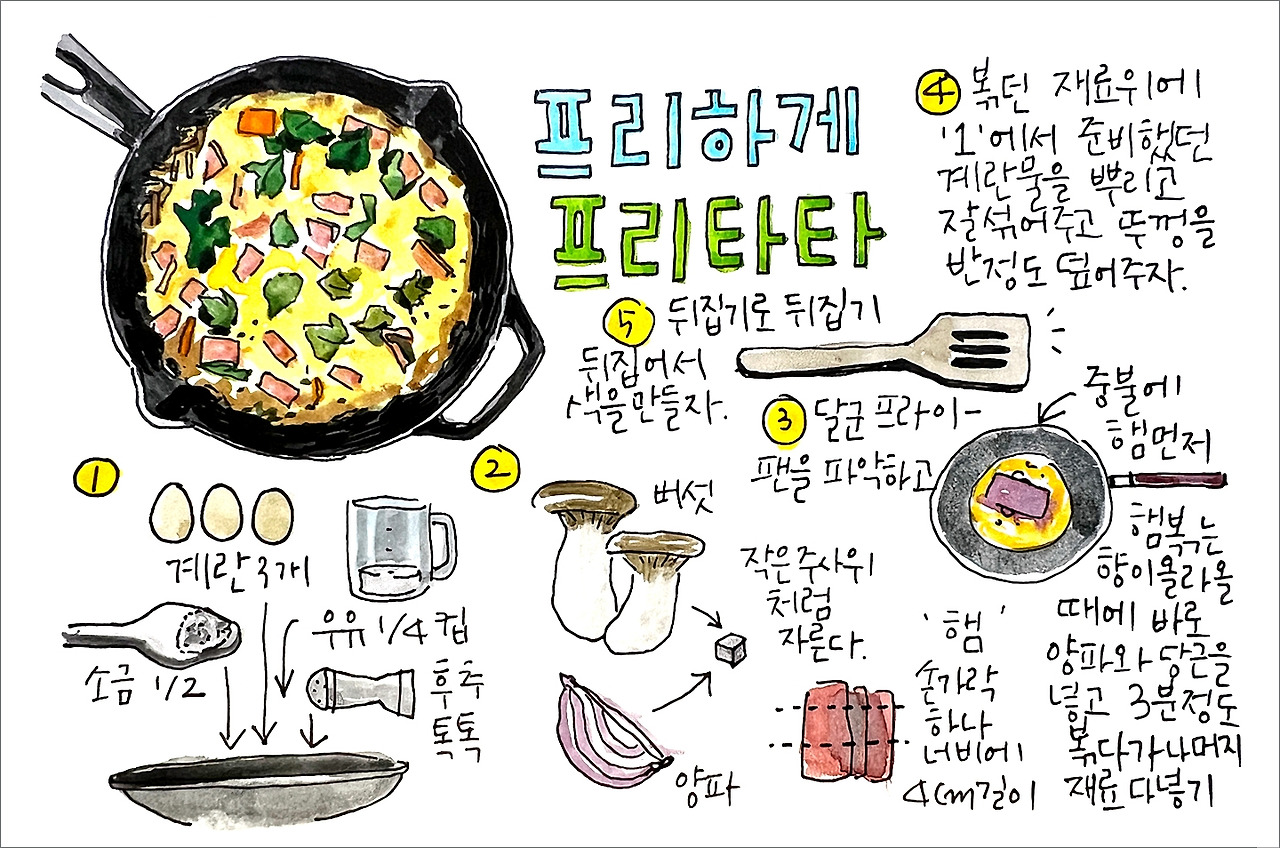 프리하게
프리타타
1
계란 3개
소금 1/2
우유 1/4 컵
후추
톡톡
2
버섯
양파
작은 주사위
처럼
자른다.
'햄'
손가락
하나
너비에
4cm길이
3 달군 프라이-
팬을 파악하고
중불에
햄먼저
햄볶는
향이올라올
때에 바로
양파와 당근을
넣고 3분정도
볶다가나머지
재료 다넣기
4 볶던 재료위에
'1'에서 준비했던
계란물을 뿌리고
잘섞어주고 뚜껑을
반정도 덮어주자.
5 뒤집기로 뒤집기
뒤집어서
색을만들자.